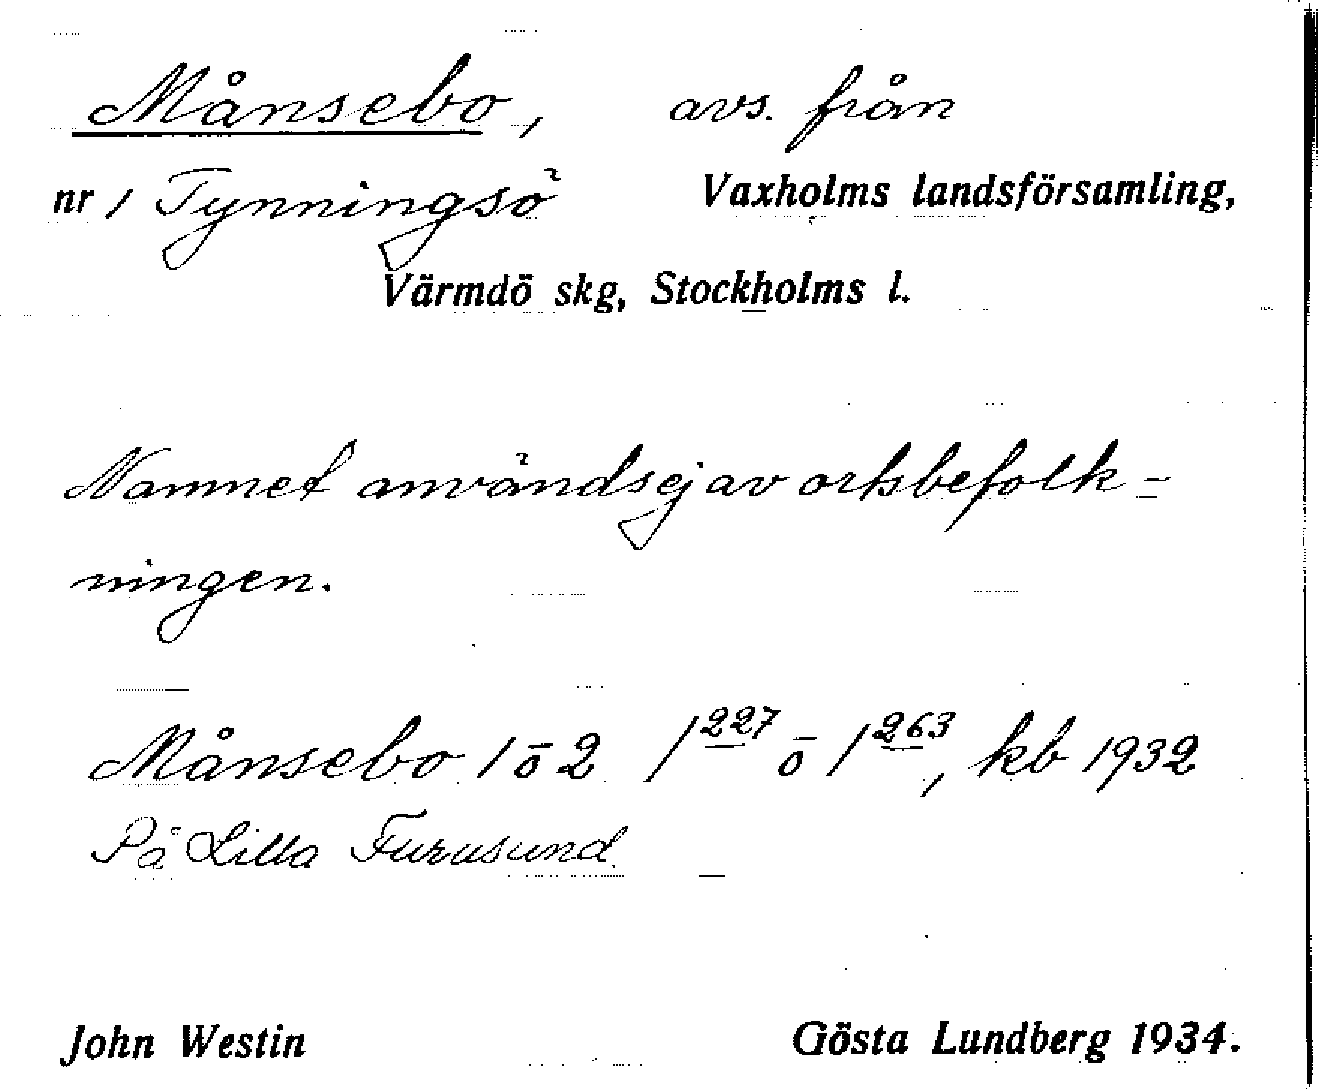 Månsebo, avs. från
nr 1 Tynningsö Vaxholms landsförsamling,
Värmdö skg, Stockholms l.
Namnet användsej av ortsbefolk-
ningen.
Månsebo 1 o 2 1 227 o 1 263, kb 1932
På Lilla Furusund
John Westin Gösta Lundberg 1934.